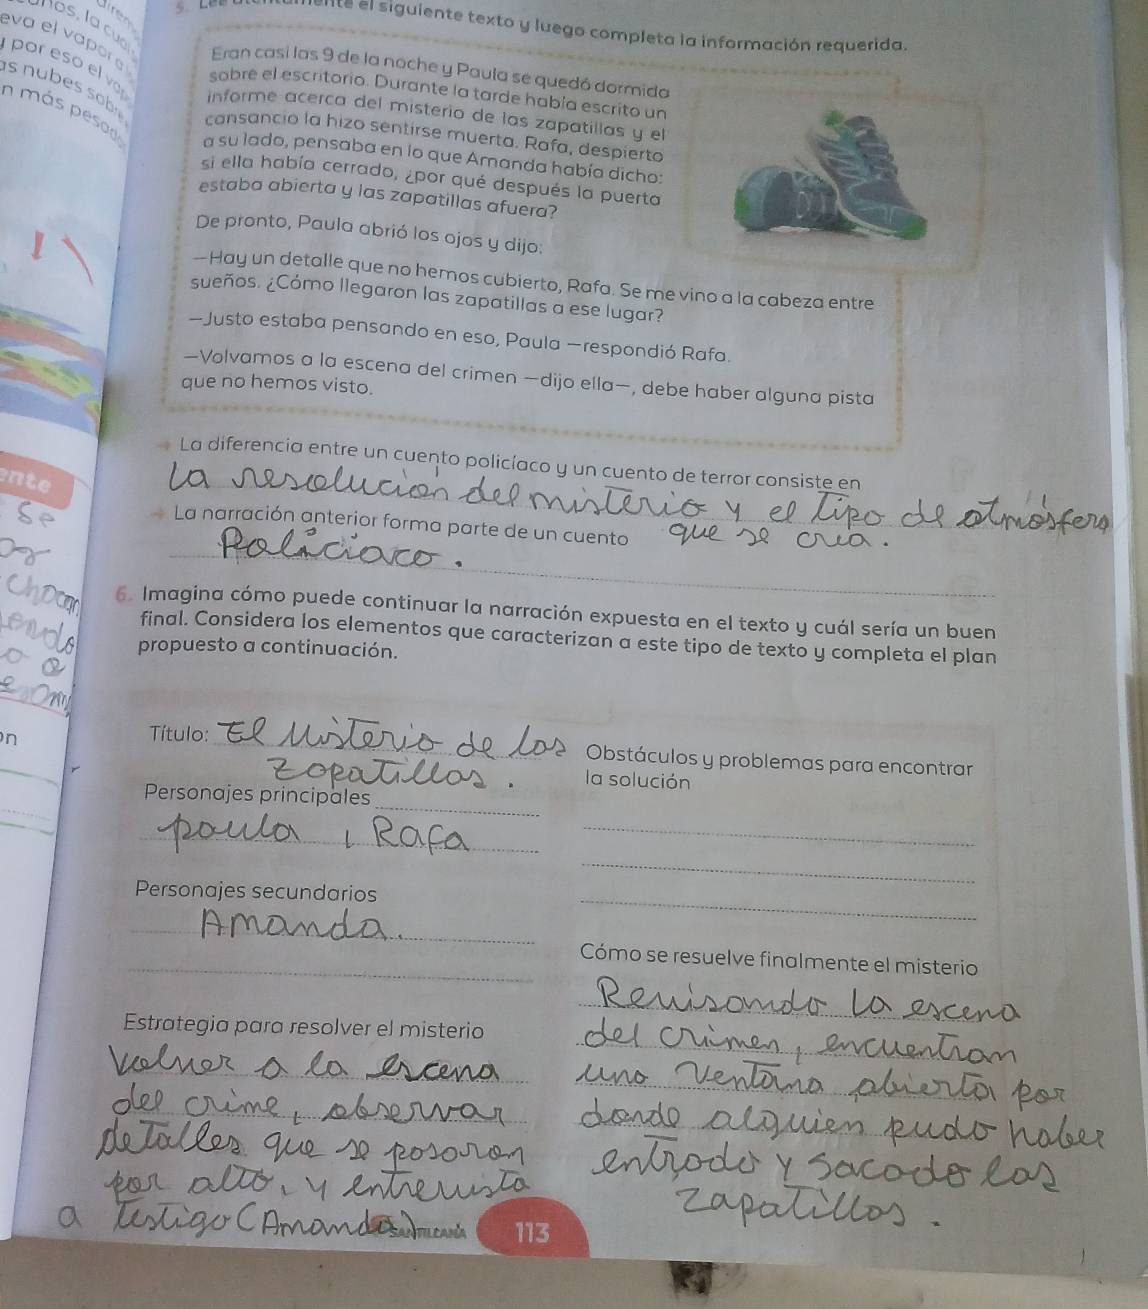 el siguiente texto y luego completa la información requerida.
Eran casi las 9 de la noche y Paula se quedó dormida
sobre el escritorio. Durante la tarde había escrito un
informe acerca del misterio de las zapatillas y el
cansancio la hizo sentirse muerta. Rafa, despierto
a su lado, pensaba en lo que Amanda había dicho:
si ella había cerrado, ¿por qué después la puerta
estaba abierta y las zapatillas afuera?
De pronto, Paula abrió los ojos y dijo:
—Hay un detalle que no hemos cubierto, Rafa. Se me vino a la cabeza entre
sueños. ¿Cómo llegaron las zapatillas a ese lugar?
—Justo estaba pensando en eso, Paula —respondió Rafa.
—Volvamos a la escena del crimen —dijo ella—, debe haber alguna pista
que no hemos visto.
La diferencia entre un cuento policíaco y un cuento de terror consiste en
La resolución del misterio y el tipo de atmósfera
que se crea.
La narración anterior forma parte de un cuento
Policíaco.
6. Imagina cómo puede continuar la narración expuesta en el texto y cuál sería un buen
final. Considera los elementos que caracterizan a este tipo de texto y completa el plan
propuesto a continuación.
Título: El Misterio de las
zopatillas.
Personajes principales
paula, Rafa
Personajes secundarios
Amanda.
Estrategia para resolver el misterio
Volver a la escena
del crime, observar
detalles que se posoron
por alto, y entrevista
a testigo (Amanda)
Obstáculos y problemas para encontrar
la solución
Cómo se resuelve finalmente el misterio
Revisando la escena
del crimen, encuentran
una ventana abierta por
donde alguien pudo haber
entrado y sacado las
zapatillas.
SANTILLANA
113
unos, la cual
eva el vapor a
y por eso el vap
as nubes sobre
n más pesado
ente
se
or
Chocan
on